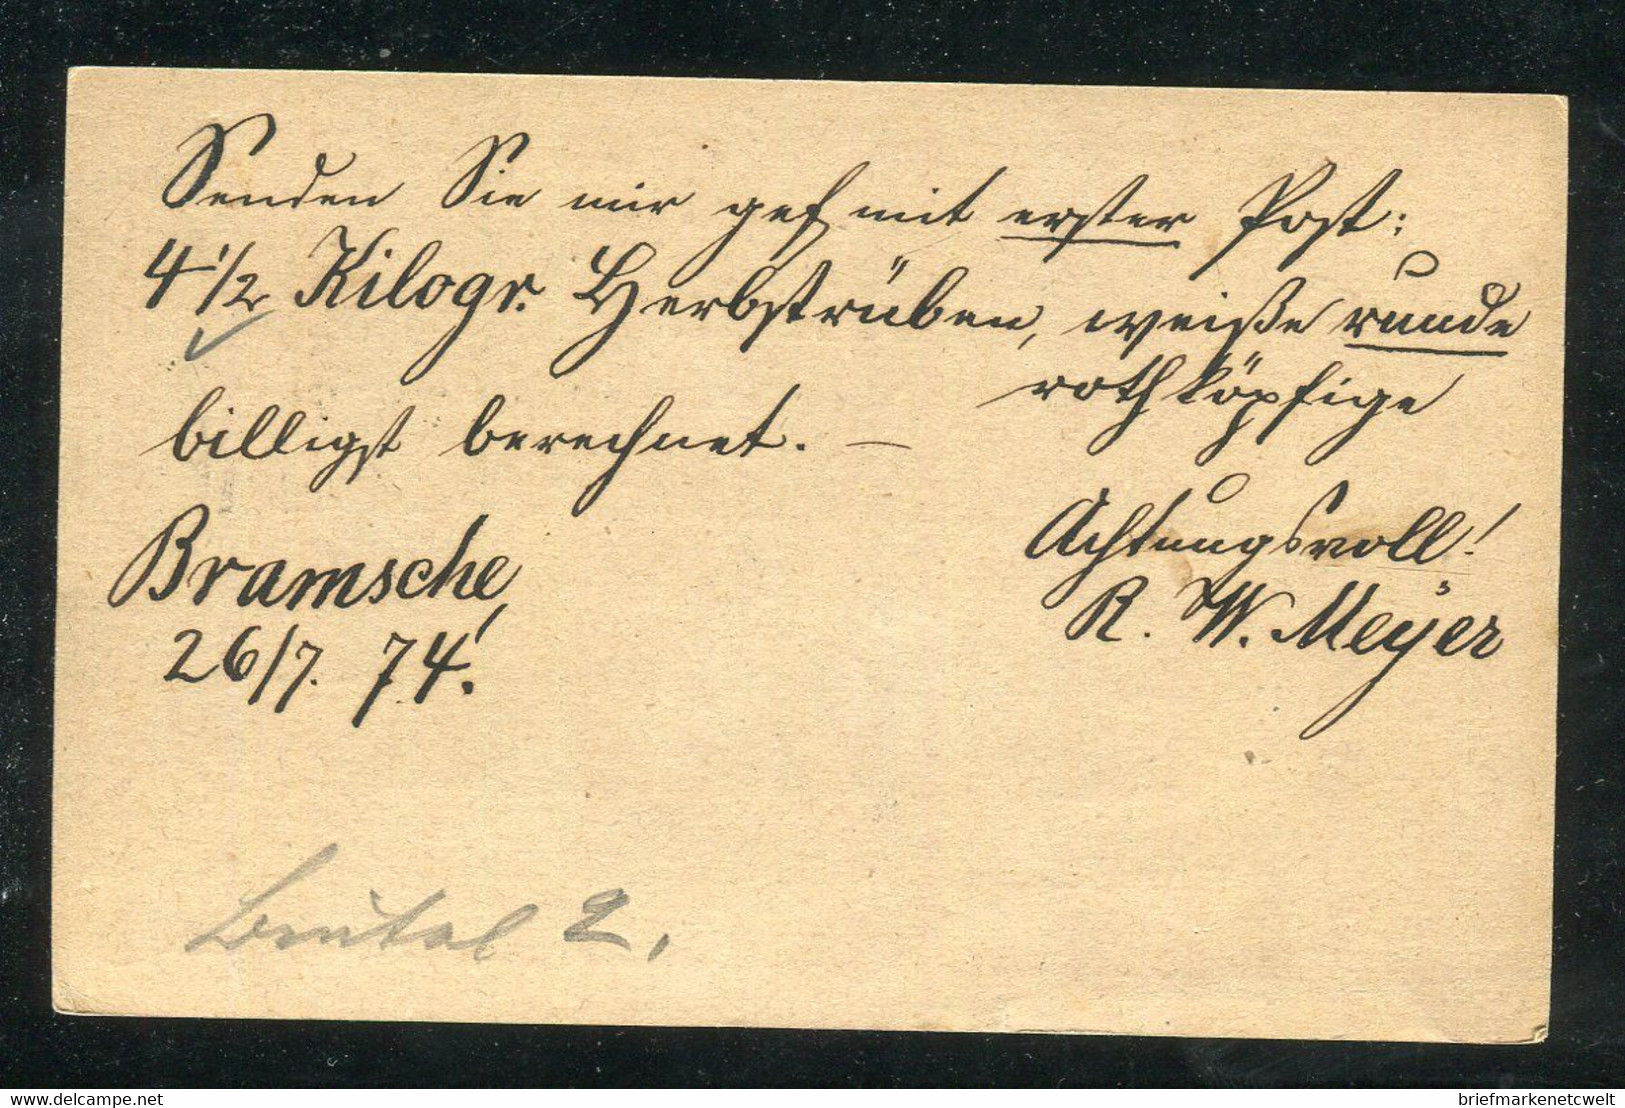 Senden Sie mir gef. mit erster Post:
4 1/2 Kilogr. Herbstrüben, weiße runde
rothköpfige
billigst berechnet. —
Achtungsvoll!
R. W. Meÿer
Bramsche,
26/7. 74!
Beutel 2.
delcampe.net
briefmarkenetcwelt